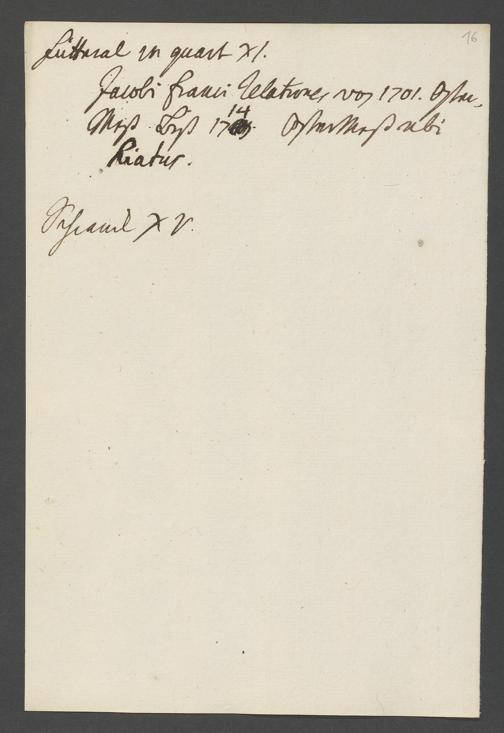 16
Futteral in quart XI.
Jacobi Franci Relationes von 1701. Oster-
Meß biß 1714 OsterMeß ubi
hiatus.
XV.